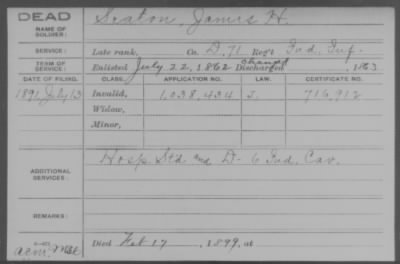 DEAD
NAME OF SOLDIER: Seaton, James H.
SERVICE: Late rank, Co. D. 71 Reg't Ind. Inf.
TERM OF SERVICE: Enlisted July 22, 1862 Discharged chang'd , 1863
DATE OF FILING. CLASS. APPLICATION NO. LAW. CERTIFICATE NO.
1891, July 13 Invalid, 1,038,434 J. 716,912
Widow,
Minor,
ADDITIONAL SERVICES: Hosp. Std and D. 6 Ind. Cav.
REMARKS:
Died Feb 17, 1899, at